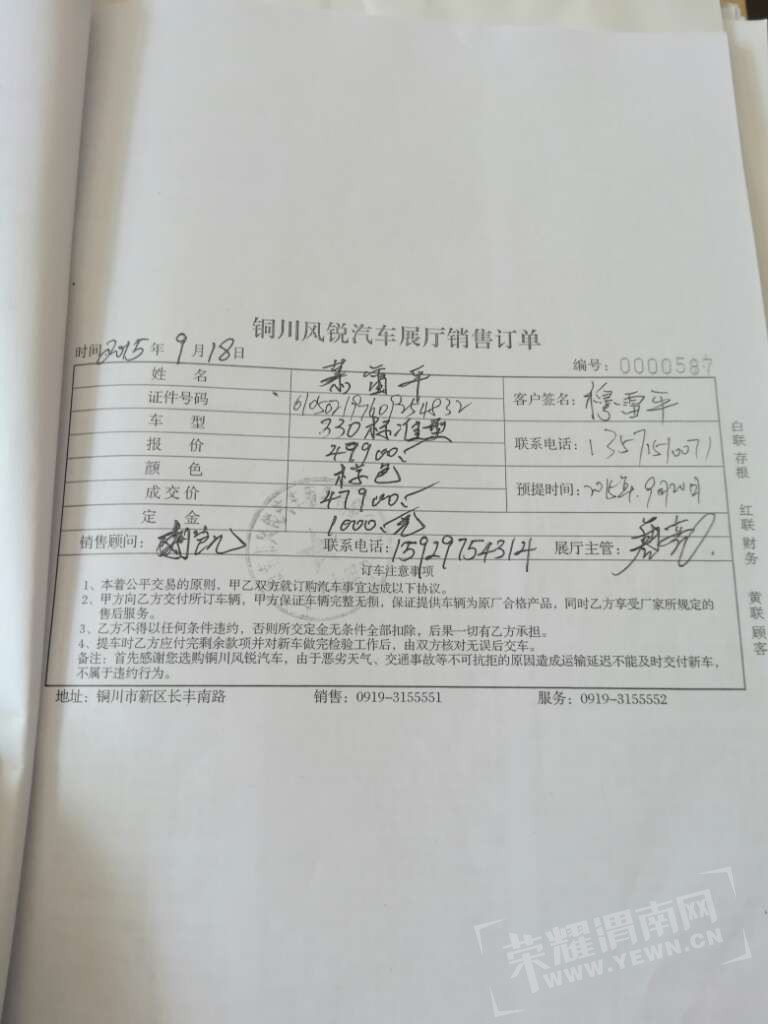 铜川风锐汽车展厅销售订单
时间2015年9月18日
编号：0000587
姓名 慕雷平
证件号码 610502197609254832 客户签名：穆雷平
车型 330标准型
报价 49900. 联系电话：13571510071
颜色 棕色
成交价 47900. 预提时间：2015年.9月20日
定金 1000.元
销售顾问： 联系电话：15929754314 展厅主管：
订车注意事项
1、本着公平交易的原则，甲乙双方就订购汽车事宜达成以下协议。
2、甲方向乙方交付所订车辆，甲方保证车辆完整无损，保证提供车辆为原厂合格产品，同时乙方享受厂家所规定的
售后服务。
3、乙方不得以任何条件违约，否则所交定金无条件全部扣除，后果一切有乙方承担。
4、提车时乙方应付完剩余款项并对新车做完检验工作后，由双方核对无误后交车。
备注：首先感谢您选购铜川风锐汽车，由于恶劣天气、交通事故等不可抗拒的原因造成运输延迟不能及时交付新车，
不属于违约行为。
地址：铜川市新区长丰南路 销售：0919-3155551 服务：0919-3155552
白联 存根
红联 财务
黄联 顾客
荣耀渭南网
WWW.YEWN.CN